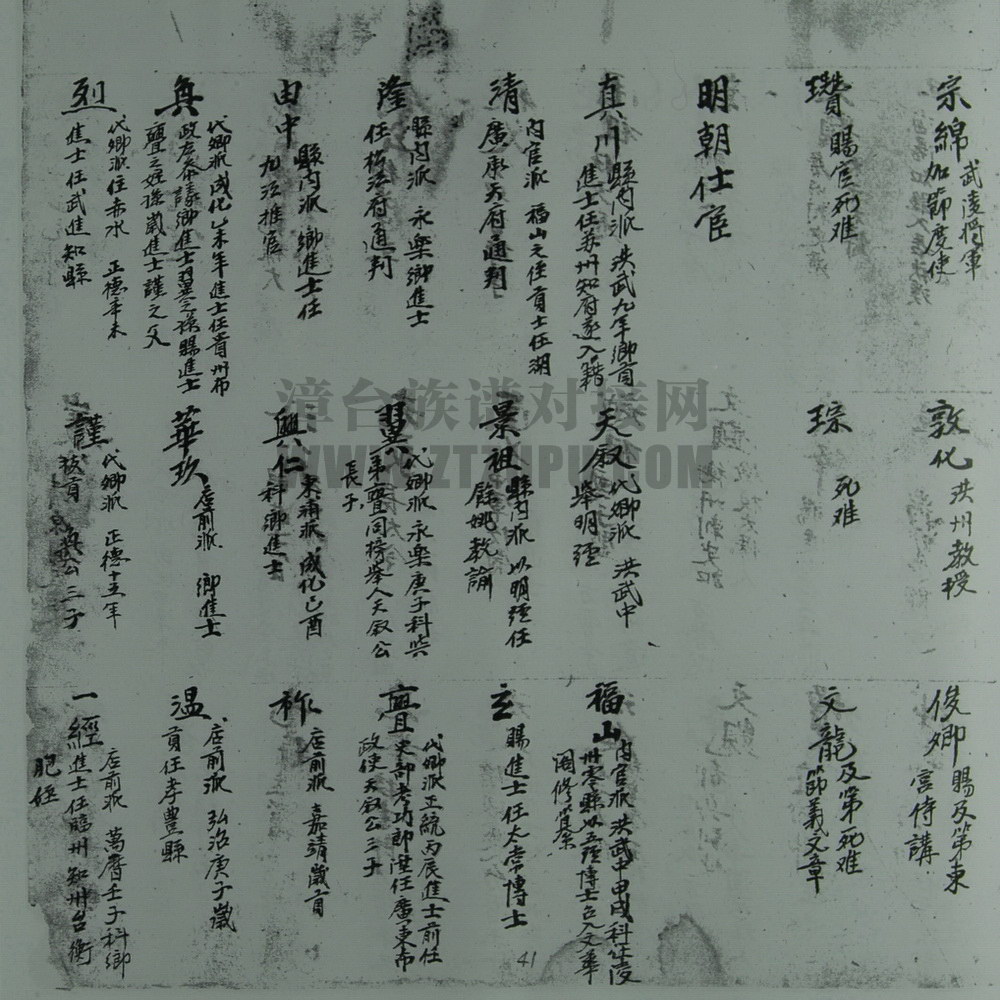 宗綿
武陵將軍
加節度使
敦化
洪州教授
俊卿
賜及第東
宮侍講
瓚
賜官死难
琮
死难
文龍
及第死难
節義文章
明朝士宦
真川
縣内派 洪武九年鄉貢
進士任苏州知府遂入籍
天叙
代卿派 洪武中
举明經
福山
内官派 洪武中甲戌科
州零縣以五經博士召入文華
阁修
清
内官派 福山之侄貢士任湖
廣承天府通判
景祖
縣内派 以明經任
餘姚教諭
玄
賜進士任太常博士
隆
縣内派 永樂鄉進士
任松江府通判
翼
代卿派 永樂庚子科
弟亹同榜举人天叙公
長子
亹
代卿派正統丙辰進士前任
吏部考功郎陞任廣東布
政使天叙公三子
由中
縣内派 鄉進士任
九江推官
興仁
東甫派 成化己酉
科鄉進士
祚
店前派 嘉靖歲貢
代卿派成化 未年進士任貴州布
政左参議鄉進士翼之孫賜進士
亹之姪孫歲進士謹之父
華玖
店前派 鄉進士
温
店前派 弘治庚子歲
貢任孝豊縣
烈
代卿派住赤水 正德辛未
進士任武進知縣
謹
代卿派 正德十五年
拔貢 公三子
一經
店前派 萬曆壬子科鄉
進士任臨州知州台衡
胞姪
41
漳台族谱对接网
WWW.ZTZUPU.COM